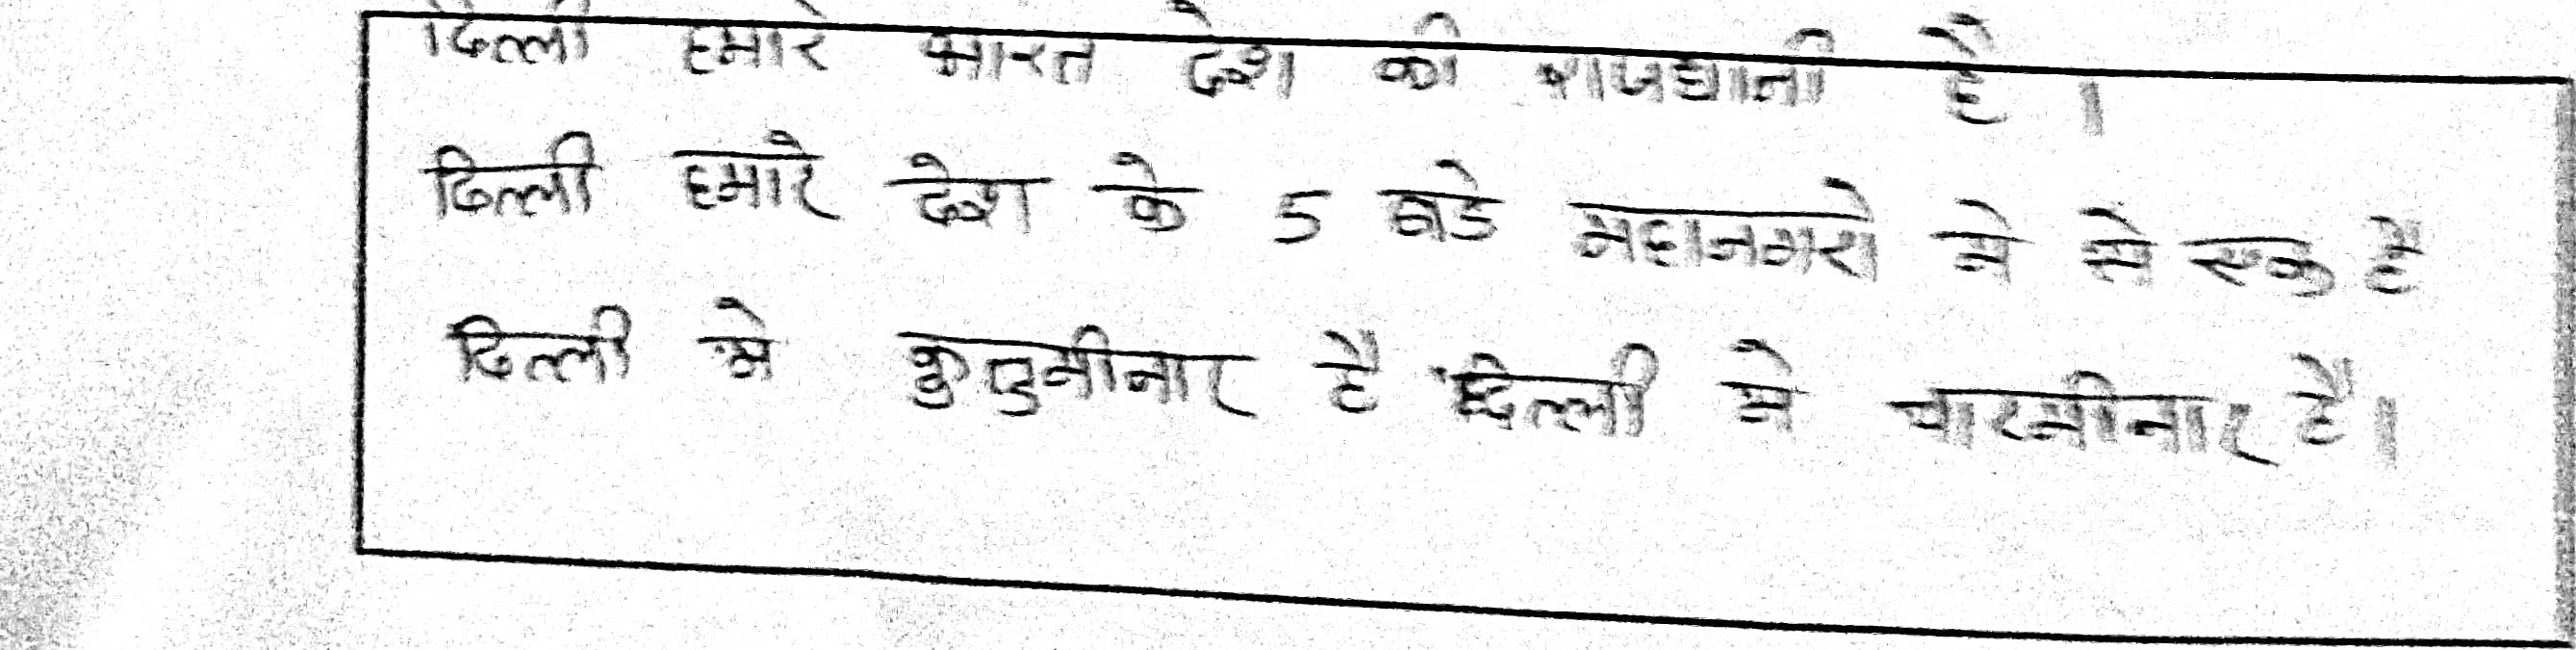 दिल्ली हमारे भारत देश की राजधानी है ।
दिल्ली हमारे देश के 5 बडे महानगरो मे से एक है
दिल्ली मे कुतुमीनार है दिल्ली मे चारमीनार है।